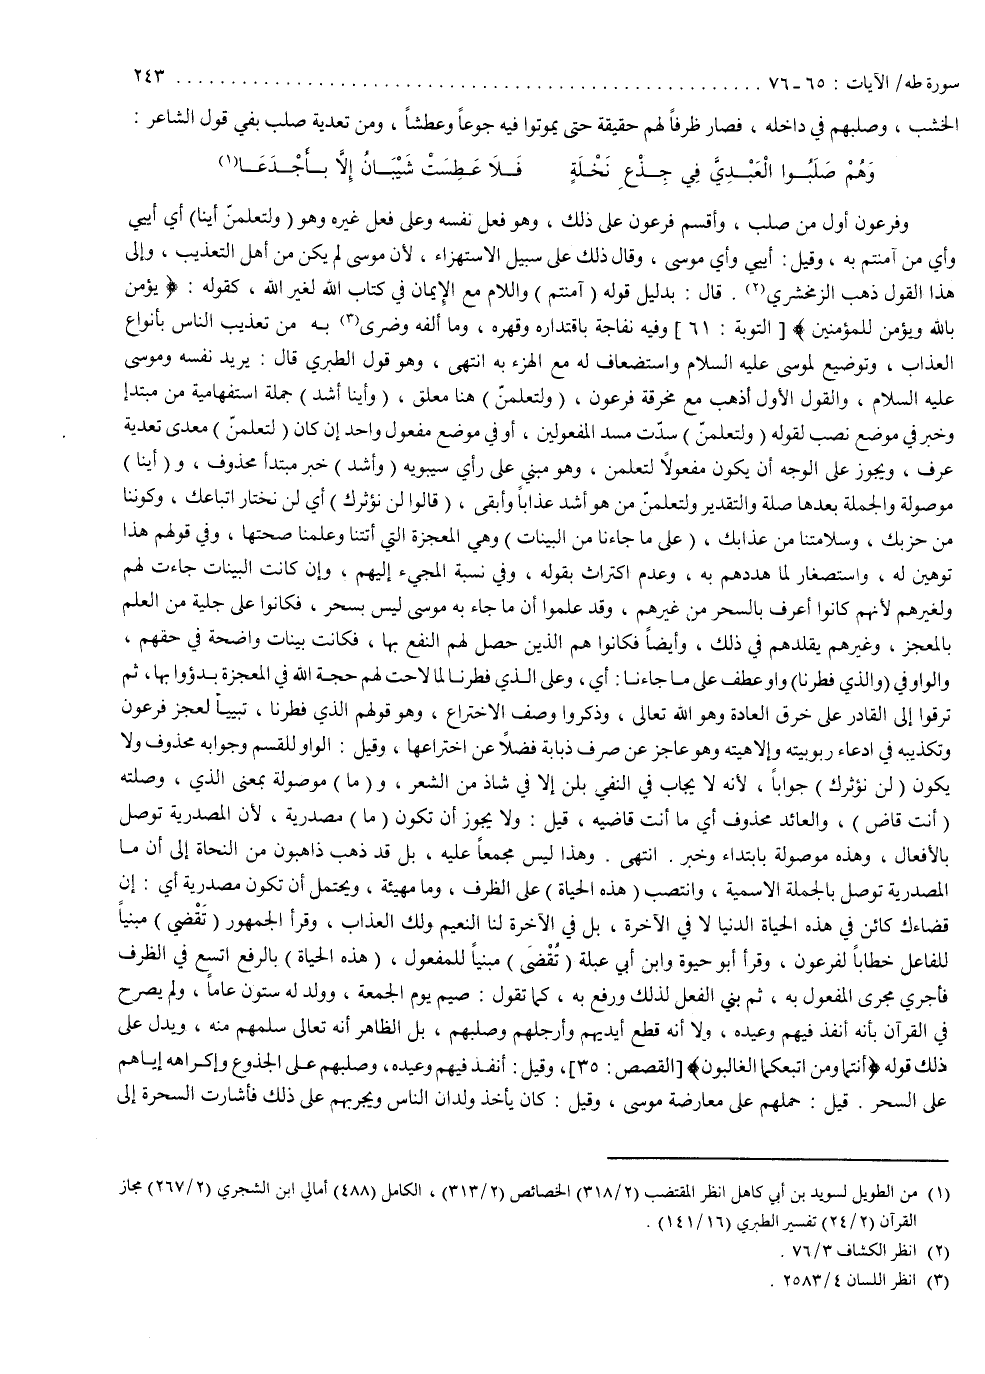 سورة طه/ الآيات : ٦٥ ـ ٧٦ ........................................................ ٢٤٣
الخشب ، وصلبهم في داخله ، فصار ظرفاً لهم حقيقة حتى يموتوا فيه جوعاً وعطشاً ، ومن تعدية صلب بفي قول الشاعر :
وَهُمْ صَلَبُوا الْعَبْدِيَّ فِي جِذْعِ نَخْلَةٍ فَلَا عَطِسَتْ شَيْبَانُ إِلَّا بِأَجْدَعَا(١)
وفرعون أول من صلب ، وأقسم فرعون على ذلك ، وهو فعل نفسه وعلى فعل غيره وهو ( ولتعلمنّ أينا ) أي أيبي
وأي من آمنتم به ، وقيل : أيبي وأي موسى ، وقال ذلك على سبيل الاستهزاء ، لأن موسى لم يكن من أهل التعذيب ، وإلى
هذا القول ذهب الزمخشري(٢) . قال : بدليل قوله ( آمنتم ) واللام مع الإيمان في كتاب الله لغير الله ، كقوله : ﴿ يؤمن
بالله ويؤمن للمؤمنين ﴾ [ التوبة : ٦١ ] وفيه نفاجة باقتداره وقهره ، وما ألفه وضرى(٣) به من تعذيب الناس بأنواع
العذاب ، وتوضيع لموسى عليه السلام واستضعاف له مع الهزء به انتهى ، وهو قول الطبري قال : يريد نفسه وموسى
عليه السلام ، والقول الأول أذهب مع مخرقة فرعون ، ( ولتعلمنّ ) هنا معلق ، ( وأينا أشد ) جملة استفهامية من مبتدإ
وخبر في موضع نصب لقوله ( ولتعلمنّ ) سدّت مسد المفعولين ، أو في موضع مفعول واحد إن كان ( لتعلمنّ ) معدى تعدية
عرف ، ويجوز على الوجه أن يكون مفعولاً لتعلمن ، وهو مبني على رأي سيبويه ( وأشد ) خبر مبتدأ محذوف ، و ( أينا )
موصولة والجملة بعدها صلة والتقدير ولتعلمنّ من هو أشد عذاباً وأبقى ، ( قالوا لن نؤثرك ) أي لن نختار اتباعك ، وكوننا
من حزبك ، وسلامتنا من عذابك ، ( على ما جاءنا من البينات ) وهي المعجزة التي أتتنا وعلمنا صحتها ، وفي قولهم هذا
توهين له ، واستصغار لما هددهم به ، وعدم اكتراث بقوله ، وفي نسبة المجيء إليهم ، وإن كانت البينات جاءت لهم
ولغيرهم لأنهم كانوا أعرف بالسحر من غيرهم ، وقد علموا أن ما جاء به موسى ليس بسحر ، فكانوا على جلية من العلم
بالمعجز ، وغيرهم يقلدهم في ذلك ، وأيضاً فكانوا هم الذين حصل لهم النفع بها ، فكانت بينات واضحة في حقهم ،
والواو في (والذي فطرنا) واو عطف على ما جاءنا : أي ، وعلى الذي فطرنا لما لاحت لهم حجة الله في المعجزة بدؤوا بها، ثم
ترقوا إلى القادر على خرق العادة وهو الله تعالى ، وذكروا وصف الاختراع ، وهو قولهم الذي فطرنا ، تبييناً لعجز فرعون
وتكذيبه في ادعاء ربوبيته وإلاهيته وهو عاجز عن صرف ذبابة فضلاً عن اختراعها ، وقيل : الواو للقسم وجوابه محذوف ولا
يكون ( لن نؤثرك ) جواباً ، لأنه لا يجاب في النفي بلن إلا في شاذ من الشعر ، و ( ما ) موصولة بمعنى الذي ، وصلته
( أنت قاض ) ، والعائد محذوف أي ما أنت قاضيه ، قيل : ولا يجوز أن تكون ( ما ) مصدرية ، لأن المصدرية توصل
بالأفعال ، وهذه موصولة بابتداء وخبر . انتهى . وهذا ليس مجمعاً عليه ، بل قد ذهب ذاهبون من النحاة إلى أن ما
المصدرية توصل بالجملة الاسمية ، وانتصب ( هذه الحياة ) على الظرف ، وما مهيئة ، ويحتمل أن تكون مصدرية أي : إن
قضاءك كائن في هذه الحياة الدنيا لا في الآخرة ، بل في الآخرة لنا النعيم ولك العذاب ، وقرأ الجمهور ( تَقْضي ) مبنياً
للفاعل خطاباً لفرعون ، وقرأ أبو حيوة وابن أبي عبلة ( تُقْضَى ) مبنياً للمفعول ، ( هذه الحياة ) بالرفع اتسع في الظرف
فأجري مجرى المفعول به ، ثم بني الفعل لذلك ورفع به ، كما تقول : صيم يوم الجمعة ، وولد له ستون عاماً ، ولم يصرح
في القرآن بأنه أنفذ فيهم وعيده ، ولا أنه قطع أيديهم وأرجلهم وصلبهم ، بل الظاهر أنه تعالى سلمهم منه ، ويدل على
ذلك قوله ﴿أنتما ومن اتبعكما الغالبون﴾ [القصص : ٣٥]، وقيل : أنفذ فيهم وعيده، وصلبهم على الجذوع وإكراهه إياهم
على السحر . قيل : حملهم على معارضة موسى ، وقيل : كان يأخذ ولدان الناس ويجربهم على ذلك فأشارت السحرة إلى
(١) من الطويل لسويد بن أبي كاهل انظر المقتضب (٣١٨/٢) الخصائص (٣١٣/٢) ، الكامل (٤٨٨) أمالي ابن الشجري (٢٦٧/٢) مجاز
القرآن (٢٤/٢) تفسير الطبري (١٤١/١٦) .
(٢) انظر الكشاف ٧٦/٣ .
(٣) انظر اللسان ٢٥٨٣/٤ .